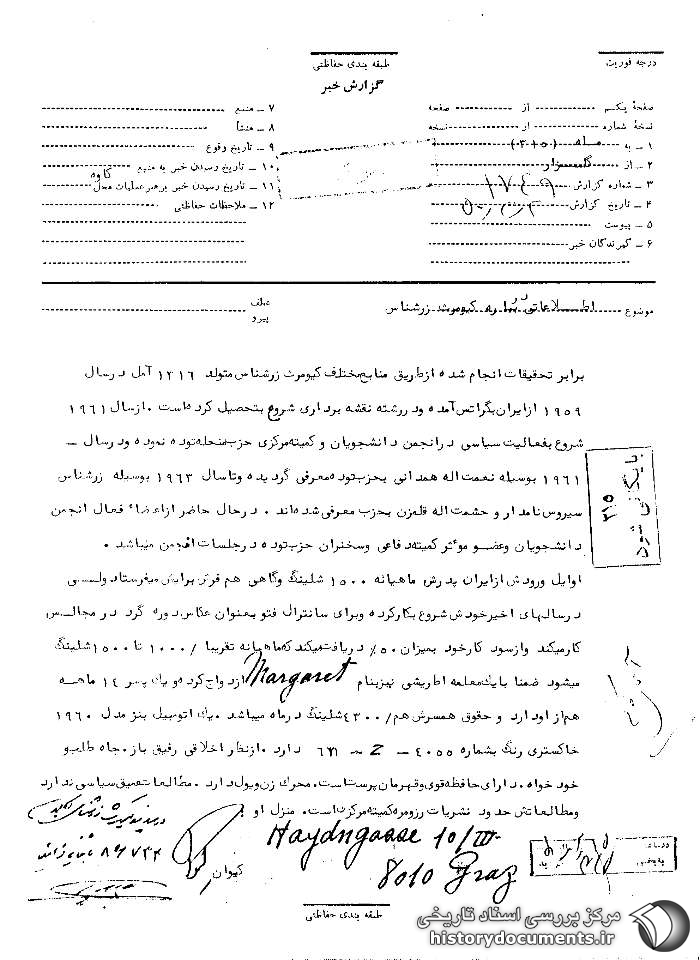 درجه فوریت
طبقه بندی حفاظتی
گزارش خبر
صفحهٔ یکم ------ از ------ صفحه
نسخهٔ شماره ------ از ------ نسخه
۱ ـ به
۲ ـ از گلسـزار
۳ ـ شماره گزارش
۴ ـ تاریخ گزارش
۵ ـ پیوست
۶ ـ گیرندگان خبر
۷ ـ منبع
۸ ـ منشأ
۹ ـ تاریخ وقوع
۱۰ ـ تاریخ رسیدن خبر به منبع
۱۱ ـ تاریخ رسیدن خبر برهبر عملیات محل کاوه
۱۲ ـ ملاحظات حفاظتی
موضوع اطـلاعاتی درباره کیومرث زرشناس
عطف
پیرو
برابر تحقیقات انجام شده ازطریق منابع مختلف کیومرث زرشناس متولد ۱۳۱۶ آمل درسال
۱۹۵۹ ازایران بگراتس آمده ودررشته نقشه برداری شروع بتحصیل کرده است ۰ ازسال ۱۹۶۱
شروع بفعالیت سیاسی درانجمن دانشجویان و کمیته مرکزی حزب منحله توده نموده ودرسال ـ
۱۹۶۱ بوسیله نعمت اله همدانی بحزب توده معرفی گردیده وتاسال ۱۹۶۳ بوسیله زرشناس
سیروس نامدار و حشمت اله قلم‌زن بحزب معرفی شده‌اند ۰ درحال حاضر ازاعضاء فعال انجمن
دانشجویان وعضو موئثر کمیته دفاعی وسخنران حزب توده درجلسات انجمن میباشد ۰
اوایل ورودش ازایران پدرش ماهیانه ۱۵۰۰ شلینگ وگاهی هم فرش برایش میفرستاد ولی
درسالهای اخیر خودش شروع بکارکرده وبرای سانترال فتو بعنوان عکاس دوره گرد در مجالس
کارمیکند وازسود کارخود بمیزان ۵۰٪ دریافت میکند که ماهیانه تقریبا /۱۰۰۰ تا ۱۵۰۰ شلینگ
میشود ضمنا بایک معلمه اطریشی نیز بنام Margaret ازدواج کرده ویک پسر ۱۴ ماهه
هم از او دارد و حقوق همسرش هم /۴۳۰۰ شلینگ درماه میباشد ۰ یک اتومبیل بنز مدل ۱۹۶۰
خاکستری رنگ بشماره ۴۰۵۵ – Z – دارد ۰ ازنظر اخلاقی رفیق باز ۰ جاه طلب و
خود خواه ۰ دارای حافظه قوی وقهرمان پرست است ۰ محرک زن وپول دارد ۰ مطالعات عمیق سیاسی ندارد
ومطالعاتش حدود نشریات روزمره کمیته مرکزی است ۰ منزل او :
Haydngasse 10/III
8010 Graz
بایگانی شود
کیوان
طبقه بندی حفاظتی
مرکز بررسی اسناد تاریخی
historydocuments.ir